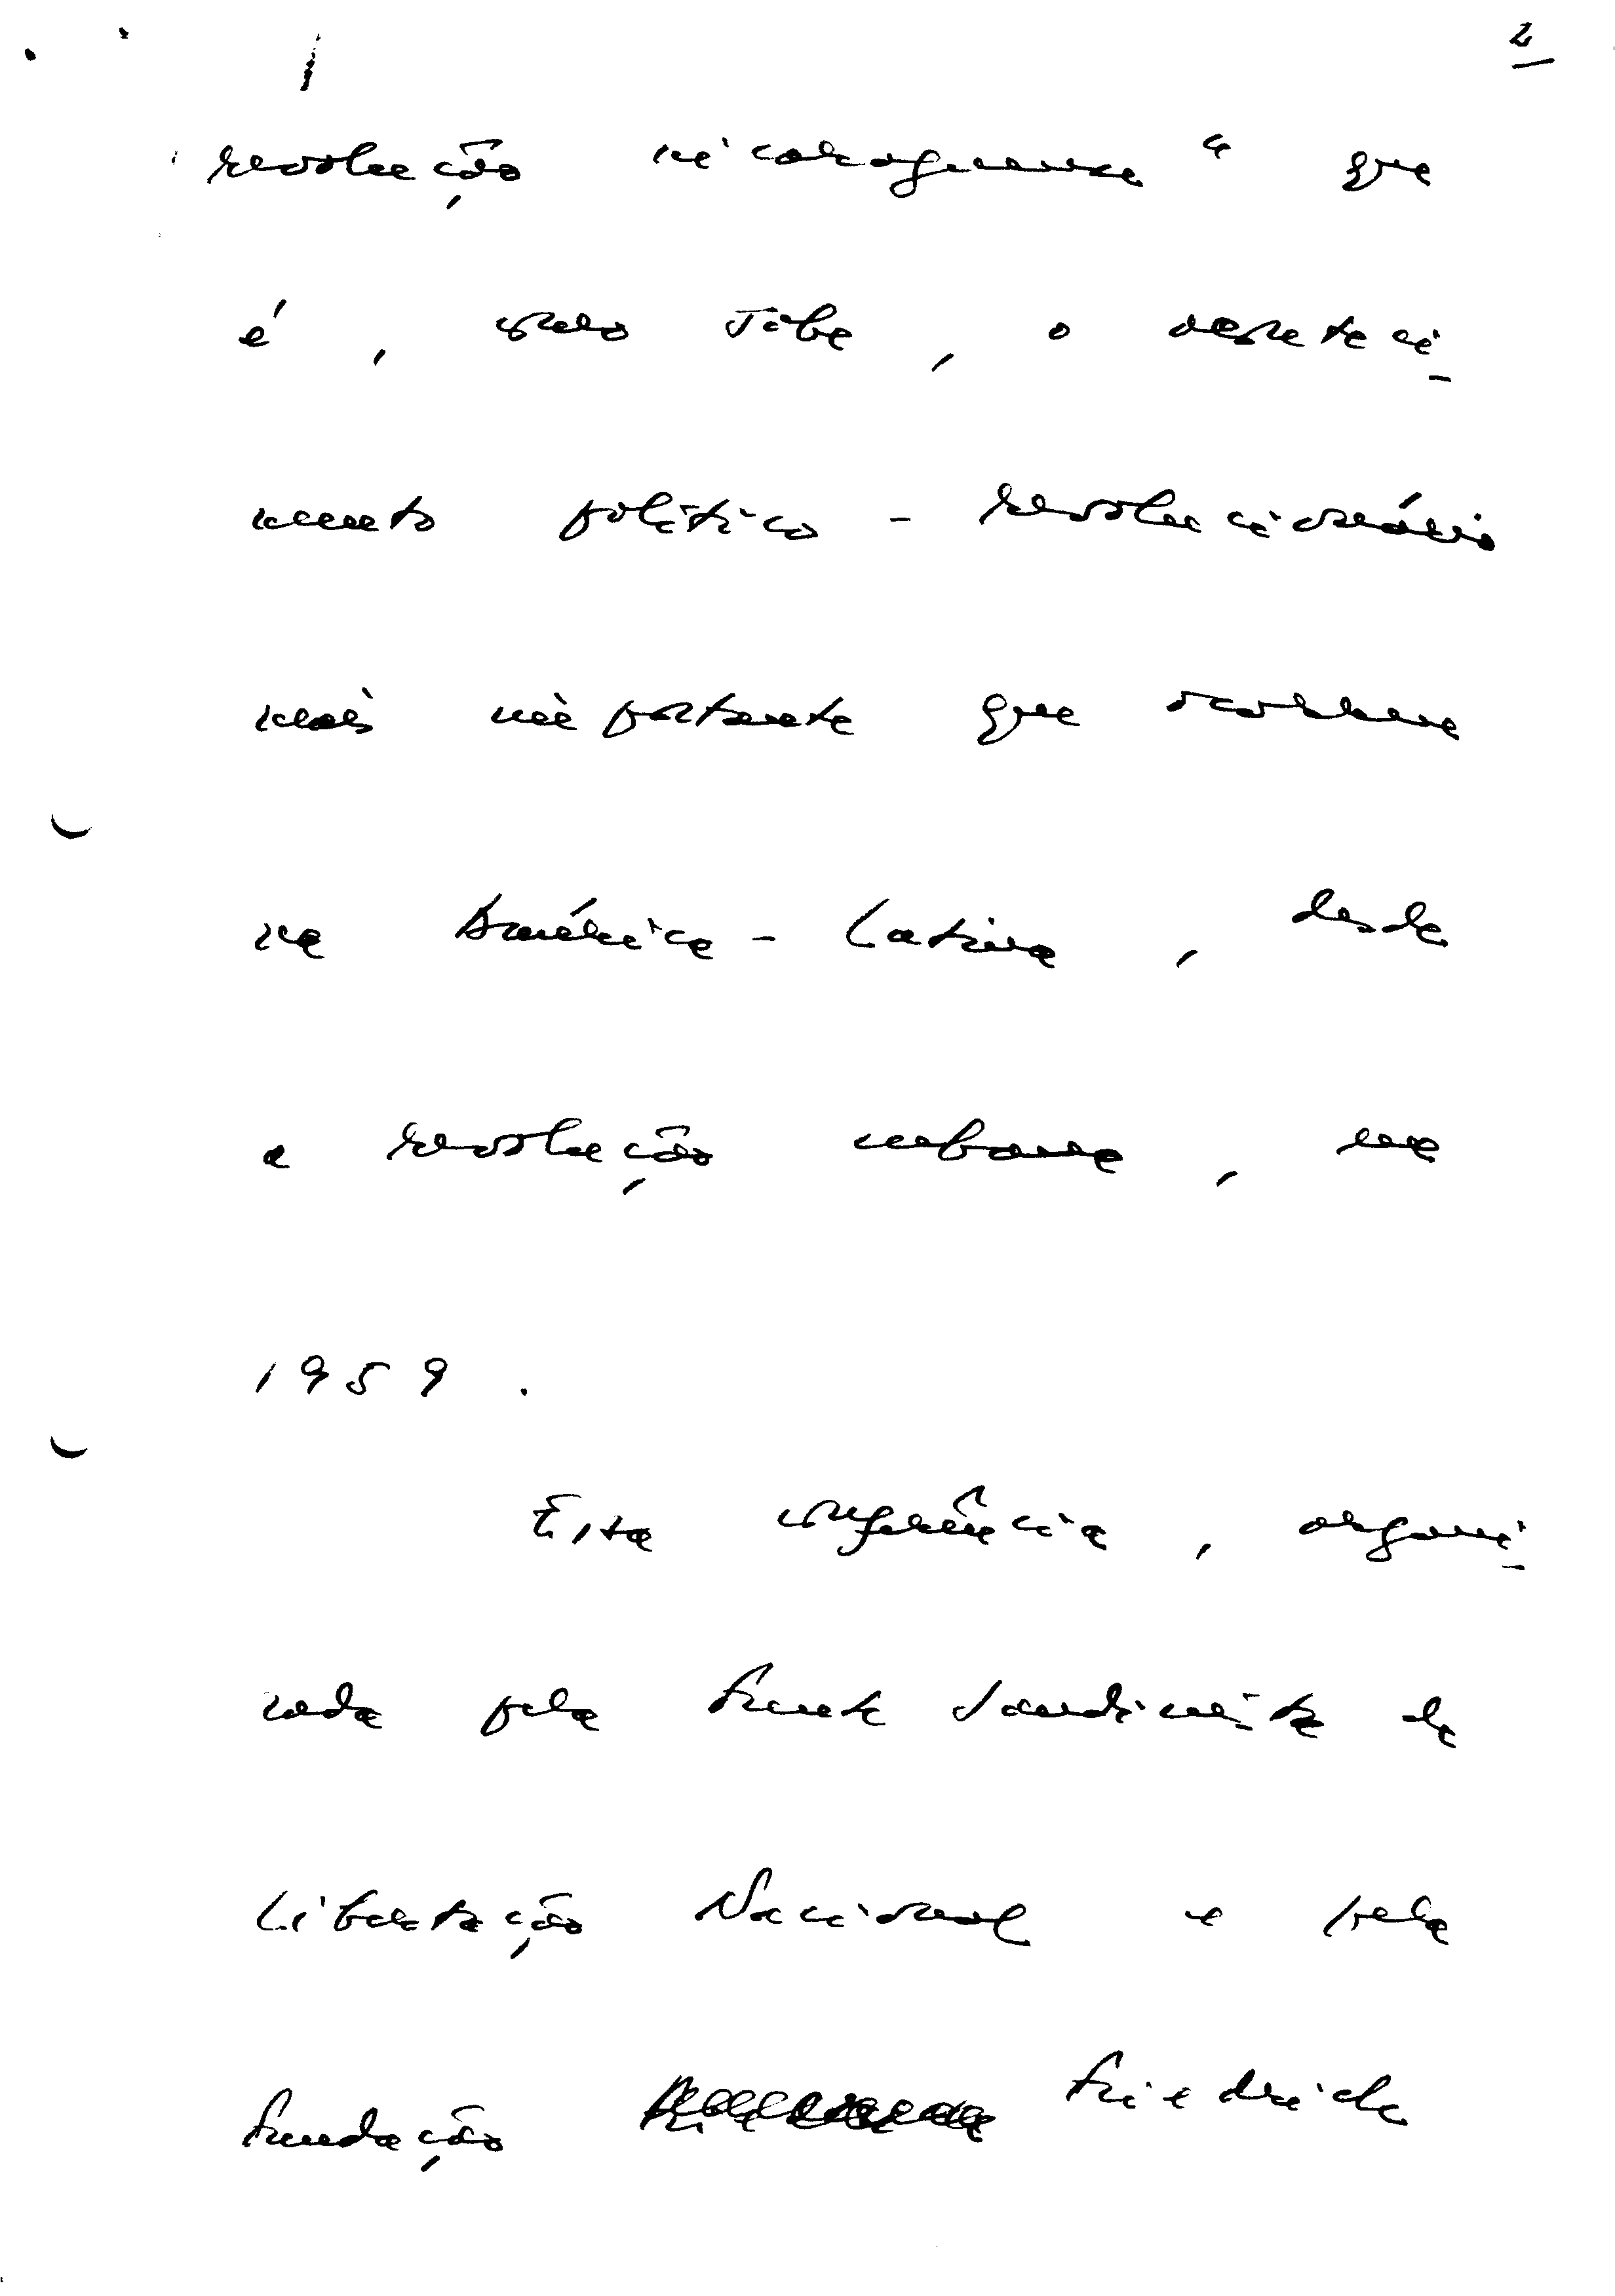 2
revolução nicaraguense" que
é, como sabe, o aconteci-
mento político - revolucionário
mais importante que ocorreu
na América - Latina, desde
a revolução cubana, em
1959.
Esta conferência, organi-
zada pela Frente Sandinista de
Libertação Nacional e pela
Fundação Friedrich